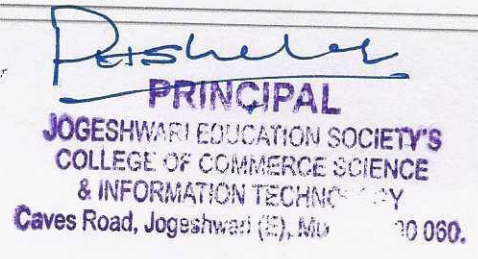 PRINCIPAL
JOGESHWARI EDUCATION SOCIETY'S
COLLEGE OF COMMERCE SCIENCE
& INFORMATION
Caves Road, Jogeshwari (E), 060.